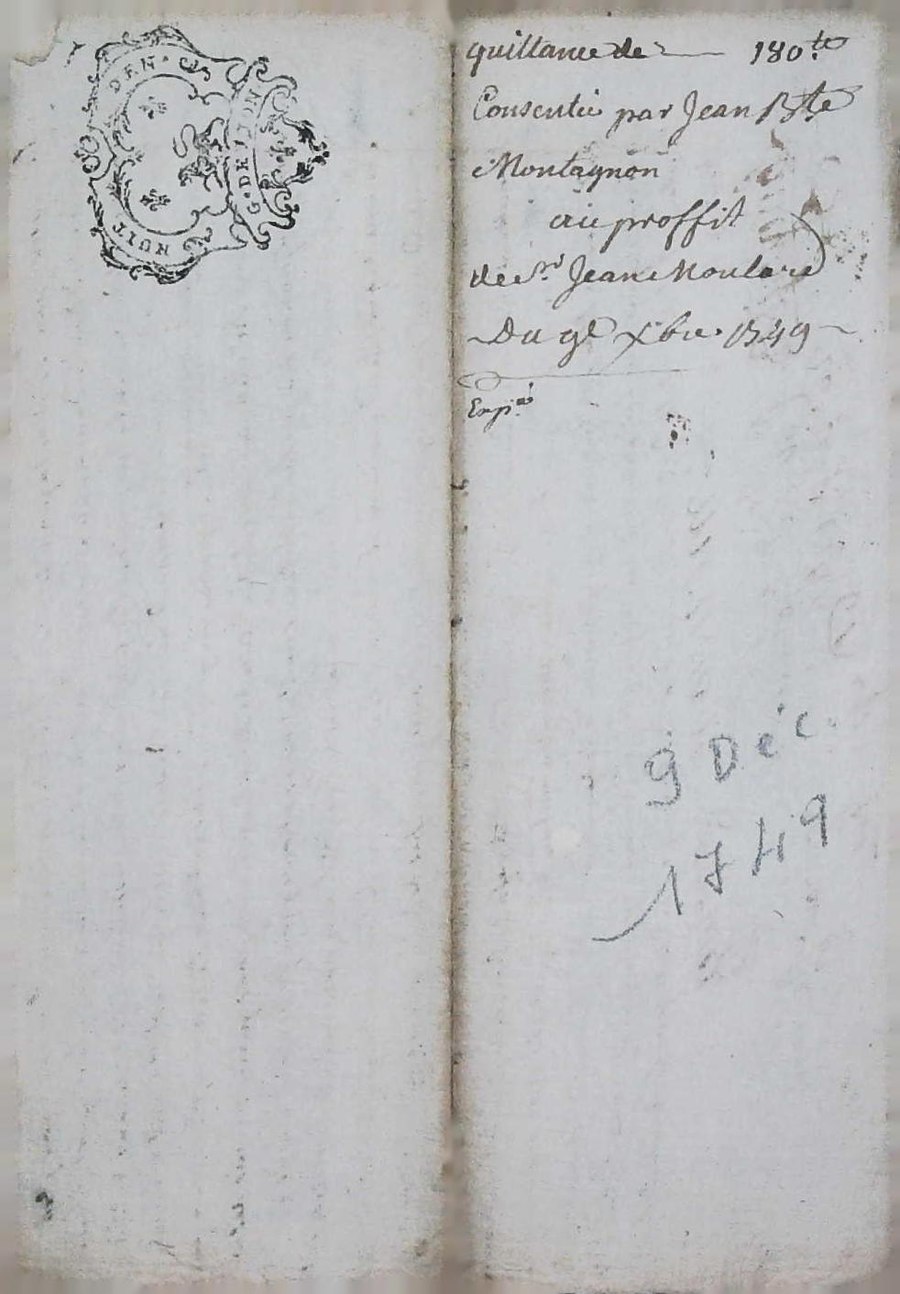 HUIT DEN.
G. DE LYON
quittance de 180 ₶
Consentie par Jean Bte
Montagnon
au proffit
de Sr. Jean Moulard
Du 9e Xbre. 1749
Exp.ée
9 Déc.
1749